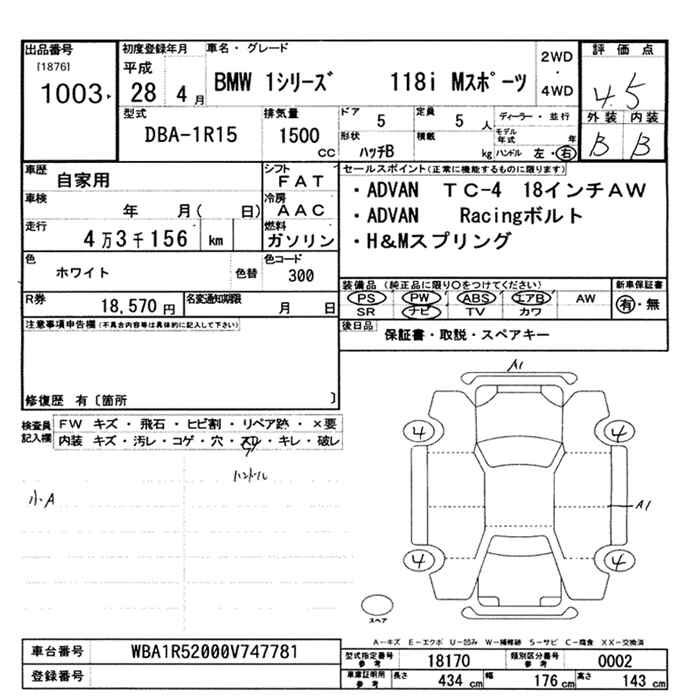 出品番号
[1876]
1003
初度登録年月
平成
28 4 月
車名・グレード
BMW 1シリーズ 118i Mスポーツ
2WD
・
4WD
評価点
4.5
外装 内装
B B
型式
DBA-1R15
排気量
1500
CC
ドア
5
定員
5 人
形状
ハッチB
積載
kg
ディーラー・並行
モデル年式 年
ハンドル 左・右
車歴
自家用
シフト
FAT
車検
年 月( 日)
冷房
AAC
走行
4万3千156 km
燃料
ガソリン
色
ホワイト
色替
色コード
300
R券
18,570 円
名変通知期限
月 日
セールスポイント(正常に機能するものに限ります)
・ADVAN TC-4 18インチAW
・ADVAN Racingボルト
・H&Mスプリング
装備品(純正品に限り○をつけてください)
PS PW ABS エアB AW
SR ナビ TV カワ
新車保証書
有・無
後日品
保証書・取説・スペアキー
注意事項申告欄(不具合内容等は具体的に記入して下さい)
修復歴 有〔箇所 〕
検査員
記入欄
FW キズ・飛石・ヒビ割・リペア跡・×要
内装 キズ・汚レ・コゲ・穴・スレ・キレ・破レ
ハンドル
小A
A1
4 4
A1
4 4
スペア
A-キズ E-エクボ U-凹み W-補修跡 S-サビ C-腐食 XX-交換済
車台番号
WBA1R52000V747781
登録番号
型式指定番号
参考
18170
類別区分番号
参考
0002
車庫証明用
参考
長さ
434 cm
幅
176 cm
高さ
143 cm